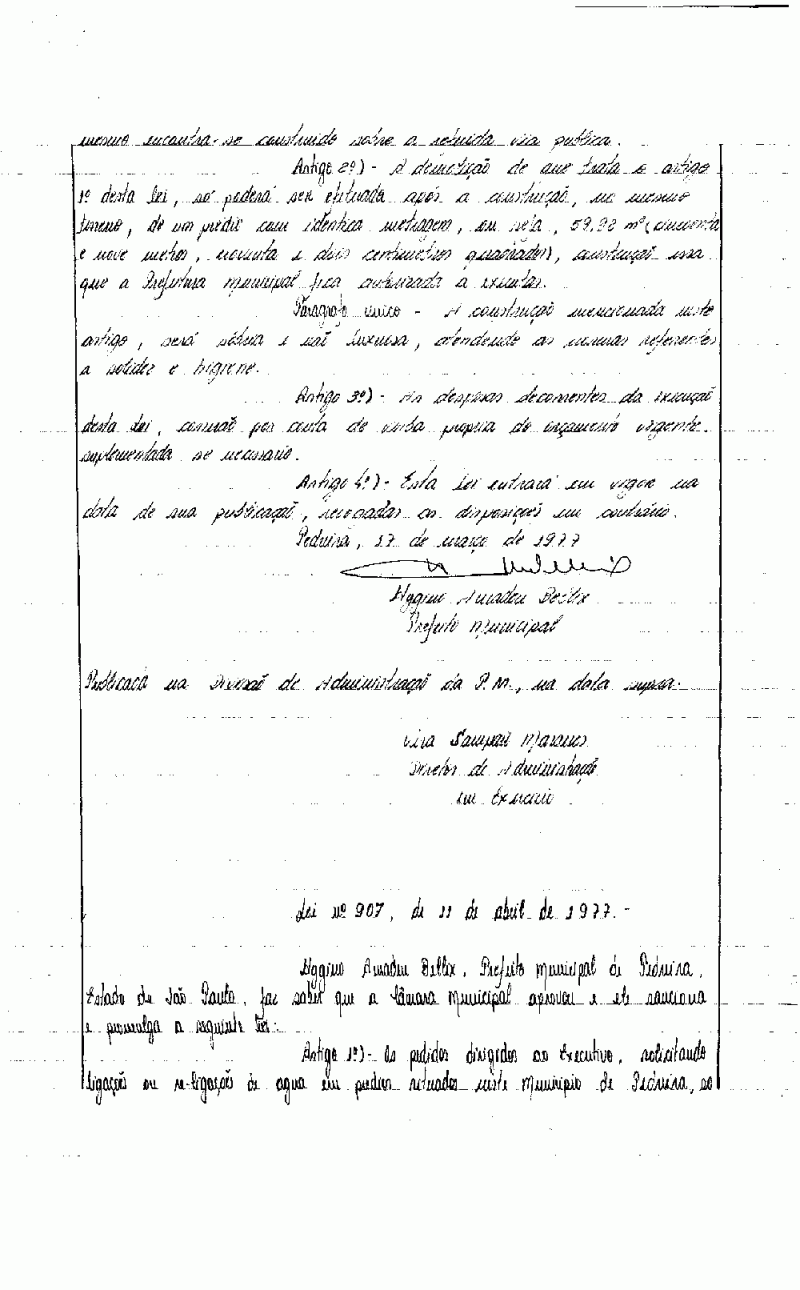 mesmo encontra-se construido sobre a referida via publica.
Artigo 2º) - A demolição de que trata o artigo
1º desta lei, só poderá ser efetuada após a construção, no mesmo
terreno, de um prédio com identica metragem, ou seja, 59,92 m² (cincoenta
e nove metros, noventa e dois centimetros quadrados), construção essa
que a Prefeitura Municipal fica autorizada à executar.
Parágrafo único - A construção mencionada neste
artigo, será sóbria e não luxuosa, atendendo as normas referentes
a solidez e higiene.
Artigo 3º) - As despesas decorrentes da execução
desta lei, correrão por conta de verba própria do orçamento vigente
suplementada se necessário.
Artigo 4º) - Esta lei entrará em vigor na
data de sua publicação, revogadas as disposições em contrário.
Pedreira, 17 de março de 1977
Hygino Amadeu Bellix
Prefeito Municipal
Publicada na Divisão de Administração da P.M., na data supra.
Sampaio
Diretor de Administração
em Exercicio
Lei nº 907, de 11 de abril de 1977.-
Hygino Amadeu Bellix, Prefeito Municipal de Pedreira,
Estado de São Paulo, faz saber que a Câmara Municipal aprovou e ele sanciona
e promulga a seguinte lei:
Artigo 1º) - Os pedidos dirigidos ao Executivo, solicitando
ligação ou re-ligação de agua em predios situados neste Municipio de Pedreira, só